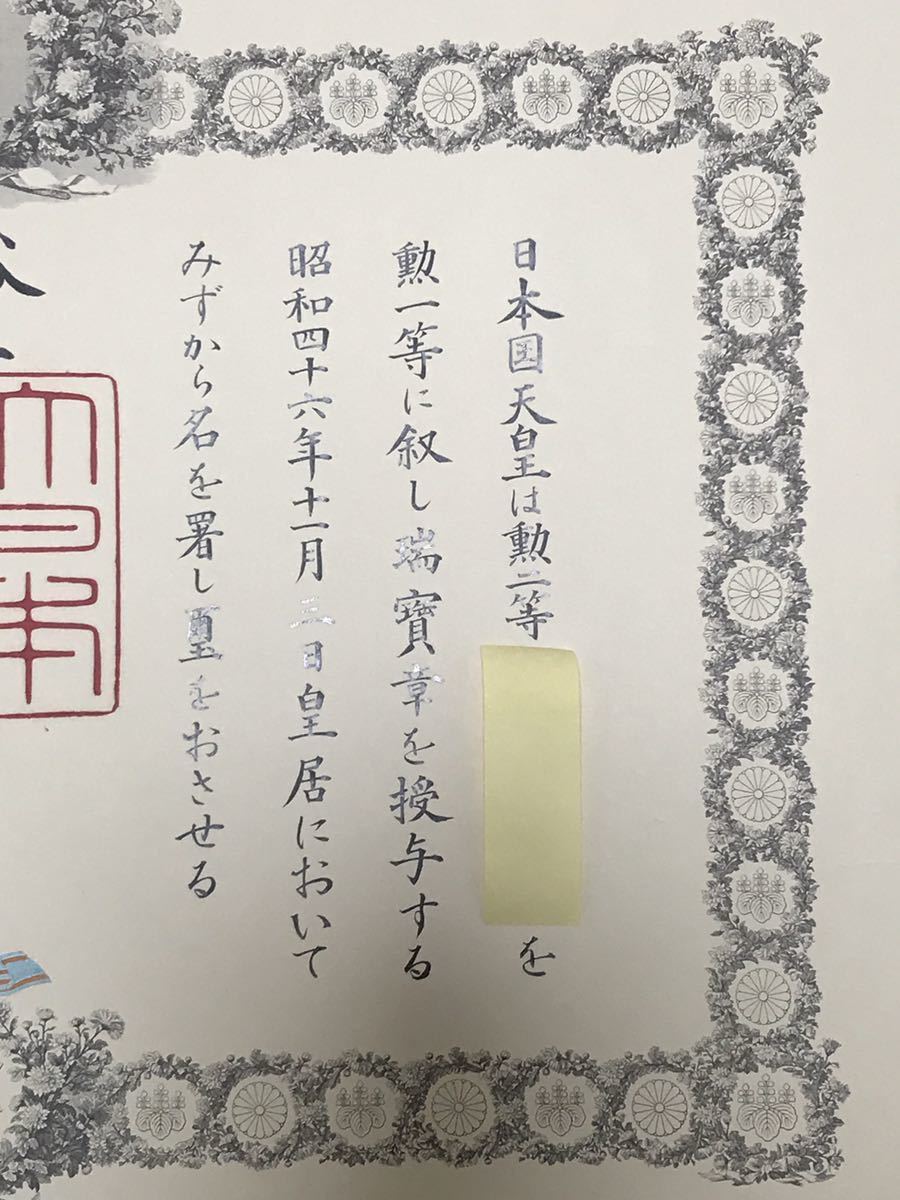 日本国天皇は勲二等
を
勲一等に叙し瑞寶章を授与する
昭和四十六年十一月三日皇居において
みずから名を署し璽をおさせる